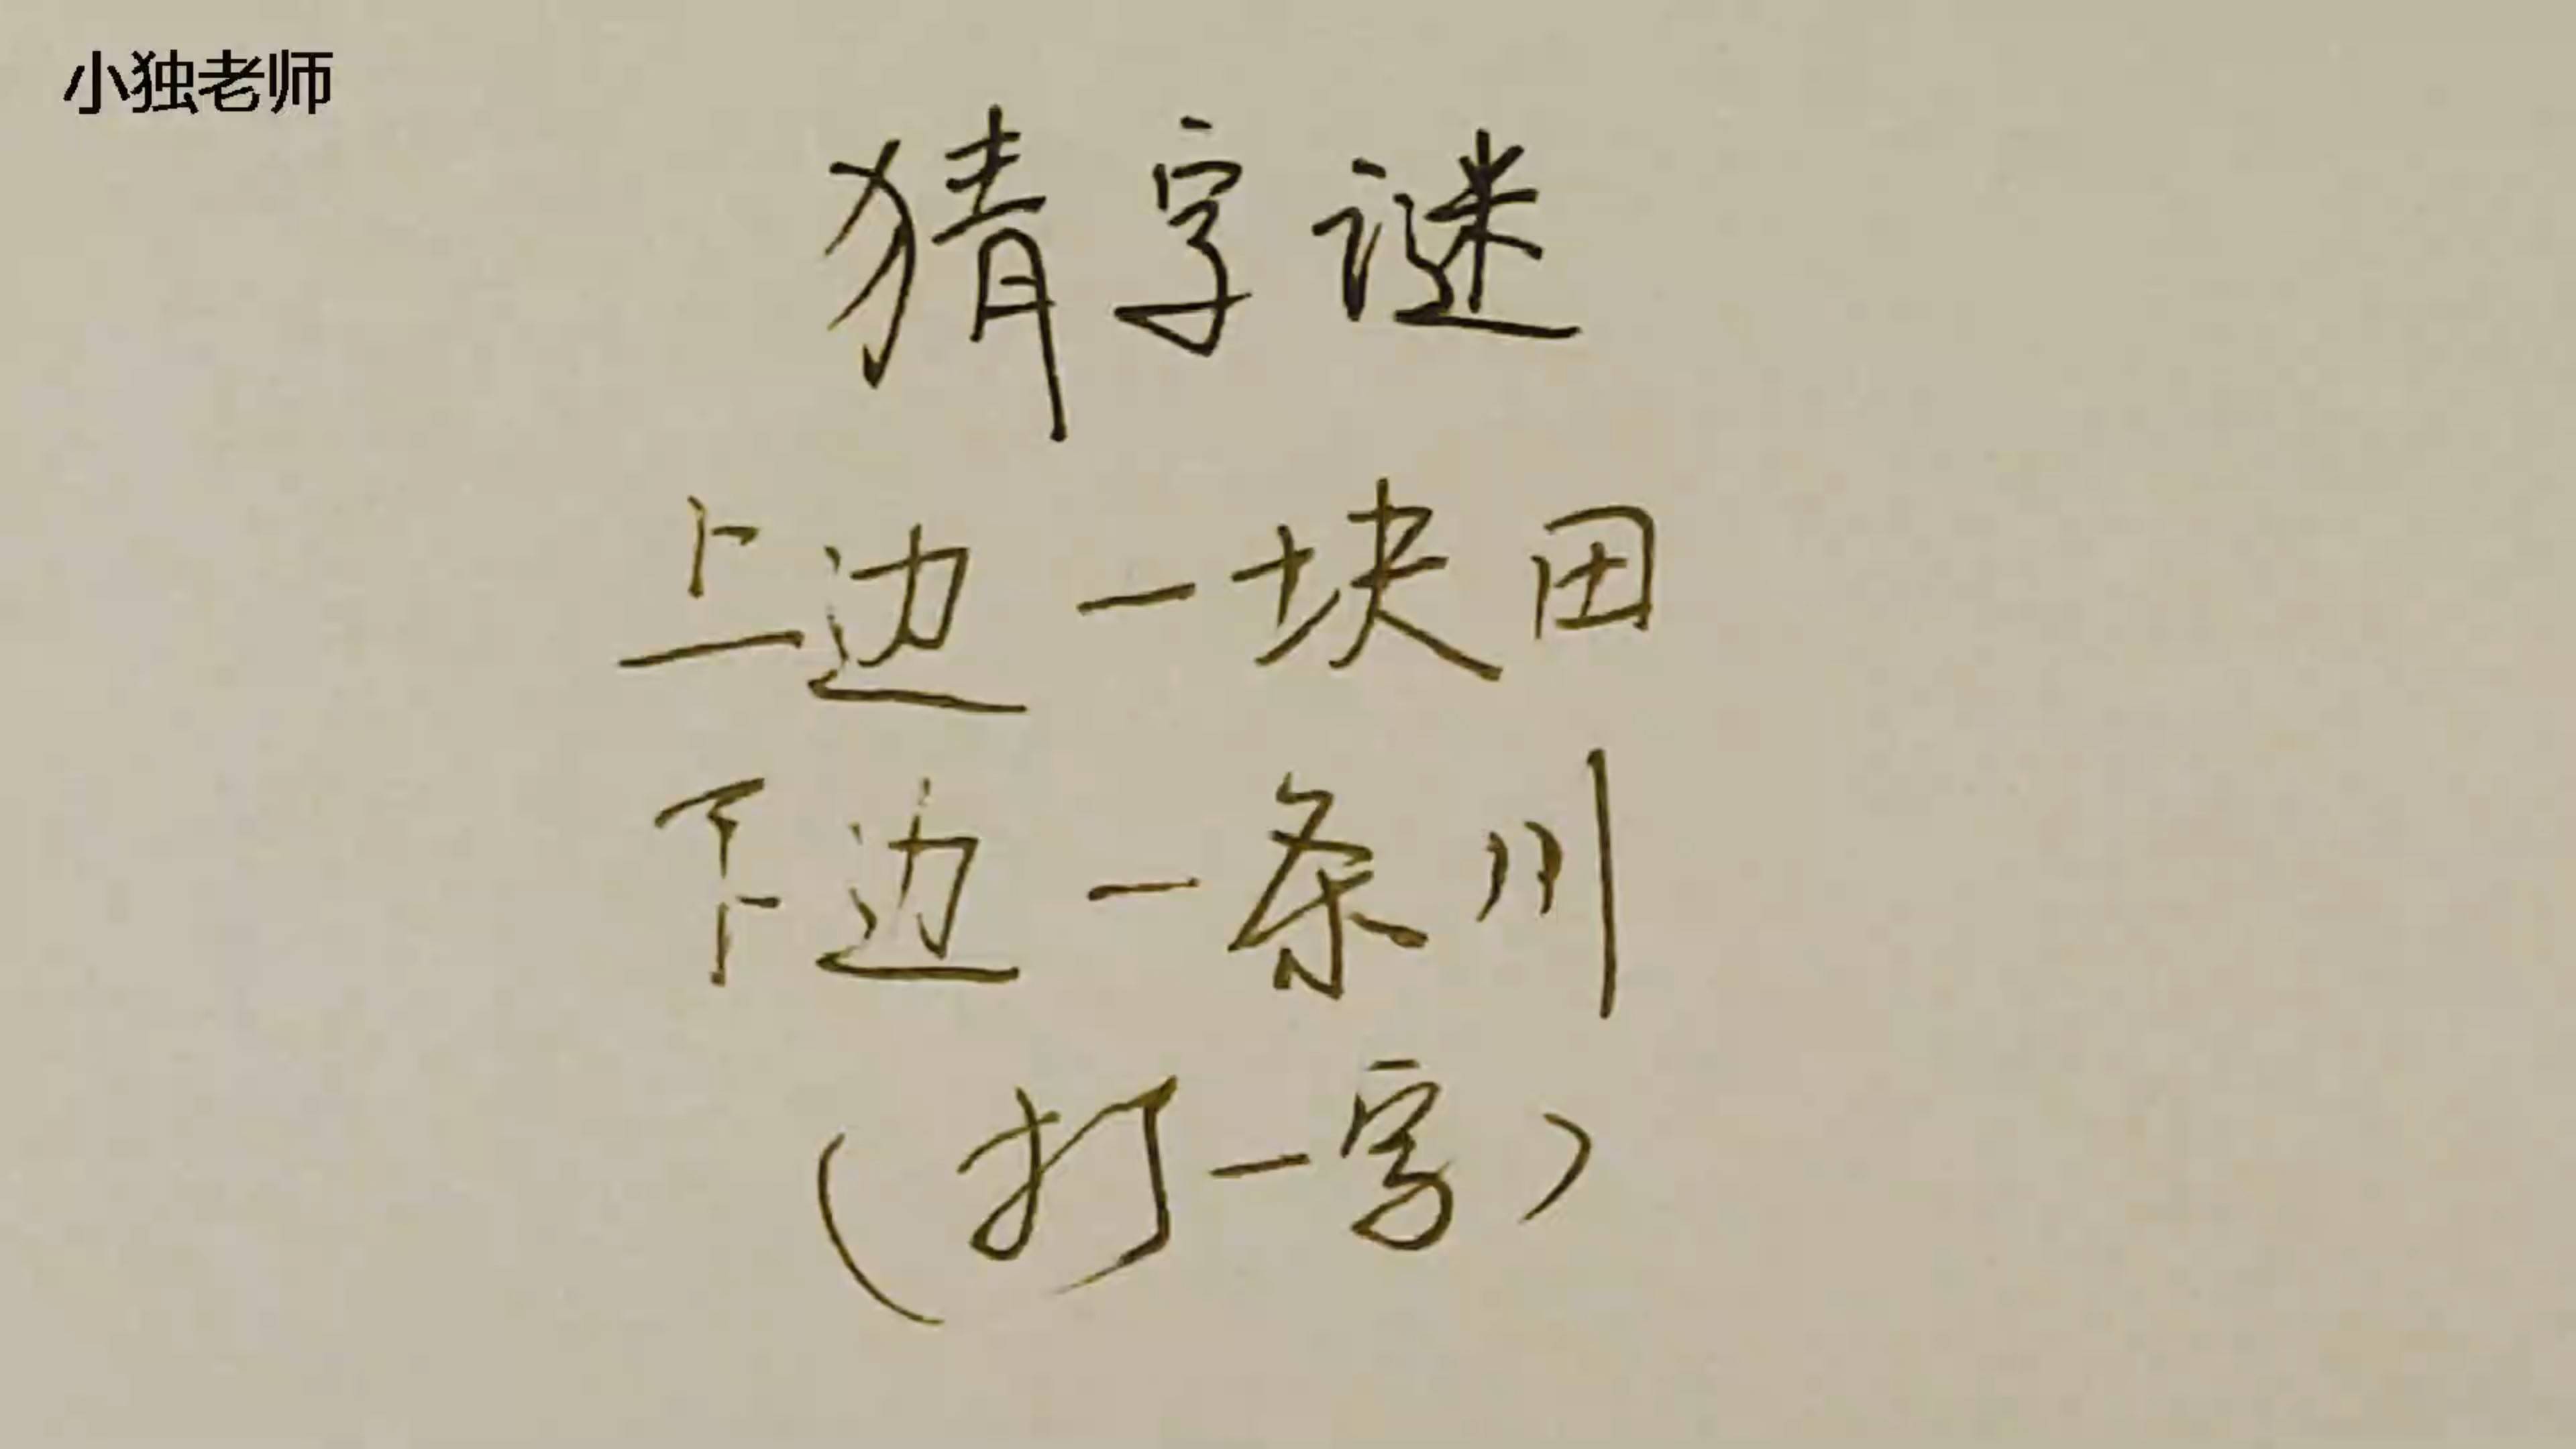 小独老师
猜字谜
上边一块田
下边一条川
(打一字)